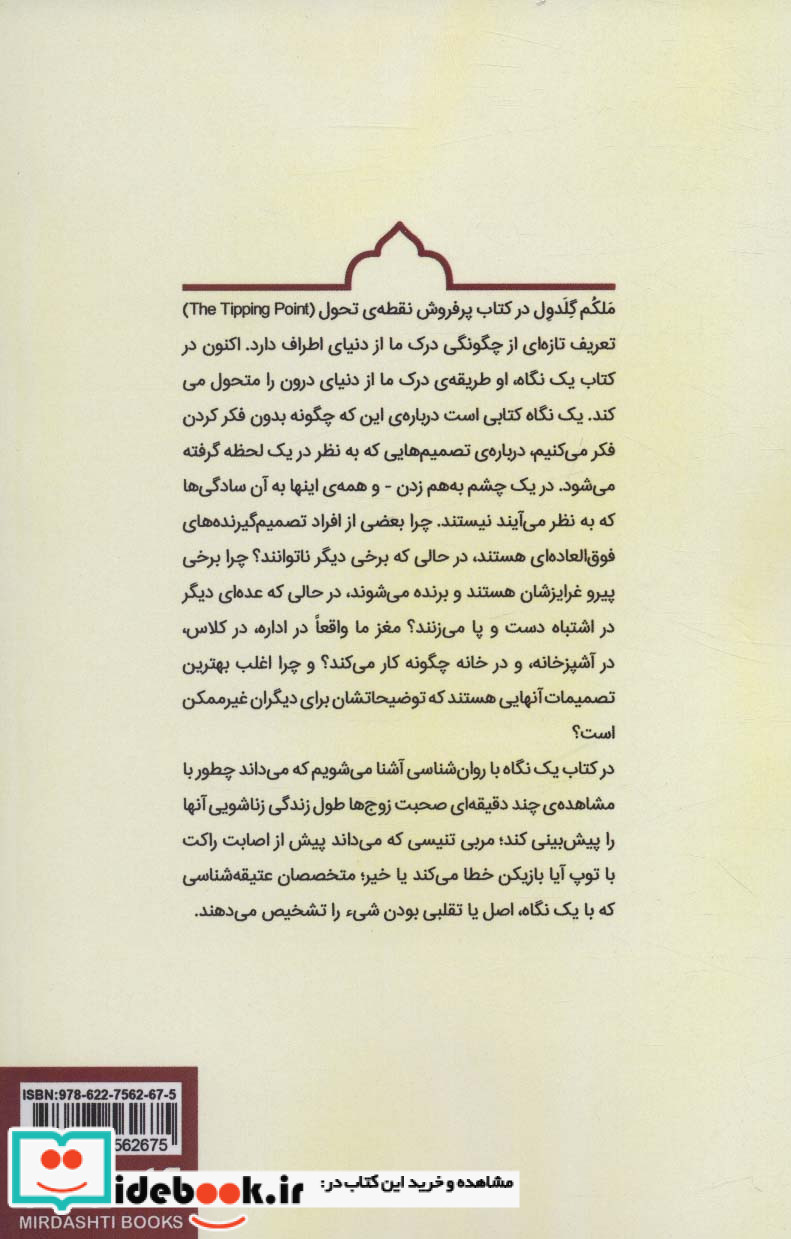 مَلکُم گِلَدوِل در کتاب پرفروش نقطه‌ی تحول (The Tipping Point)
تعریف تازه‌ای از چگونگی درک ما از دنیای اطراف دارد. اکنون در
کتاب یک نگاه، او طریقه‌ی درک ما از دنیای درون را متحول می
کند. یک نگاه کتابی است درباره‌ی این که چگونه بدون فکر کردن
فکر می‌کنیم، درباره‌ی تصمیم‌هایی که به نظر در یک لحظه گرفته
می‌شود. در یک چشم به‌هم زدن - و همه‌ی اینها به آن سادگی‌ها
که به نظر می‌آیند نیستند. چرا بعضی از افراد تصمیم‌گیرنده‌های
فوق‌العاده‌ای هستند، در حالی که برخی دیگر ناتوانند؟ چرا برخی
پیرو غرایزشان هستند و برنده می‌شوند، در حالی که عده‌ای دیگر
در اشتباه دست و پا می‌زنند؟ مغز ما واقعاً در اداره، در کلاس،
در آشپزخانه، و در خانه چگونه کار می‌کند؟ و چرا اغلب بهترین
تصمیمات آنهایی هستند که توضیحاتشان برای دیگران غیرممکن
است؟
در کتاب یک نگاه با روان‌شناسی آشنا می‌شویم که می‌داند چطور با
مشاهده‌ی چند دقیقه‌ای صحبت زوج‌ها طول زندگی زناشویی آنها
را پیش‌بینی کند؛ مربی تنیسی که می‌داند پیش از اصابت راکت
با توپ آیا بازیکن خطا می‌کند یا خیر؛ متخصصان عتیقه‌شناسی
که با یک نگاه، اصل یا تقلبی بودن شیء را تشخیص می‌دهند.
ISBN:978-622-7562-67-5
562675
مشاهده و خرید این کتاب در:
idebook.ir
MIRDASHTI BOOKS